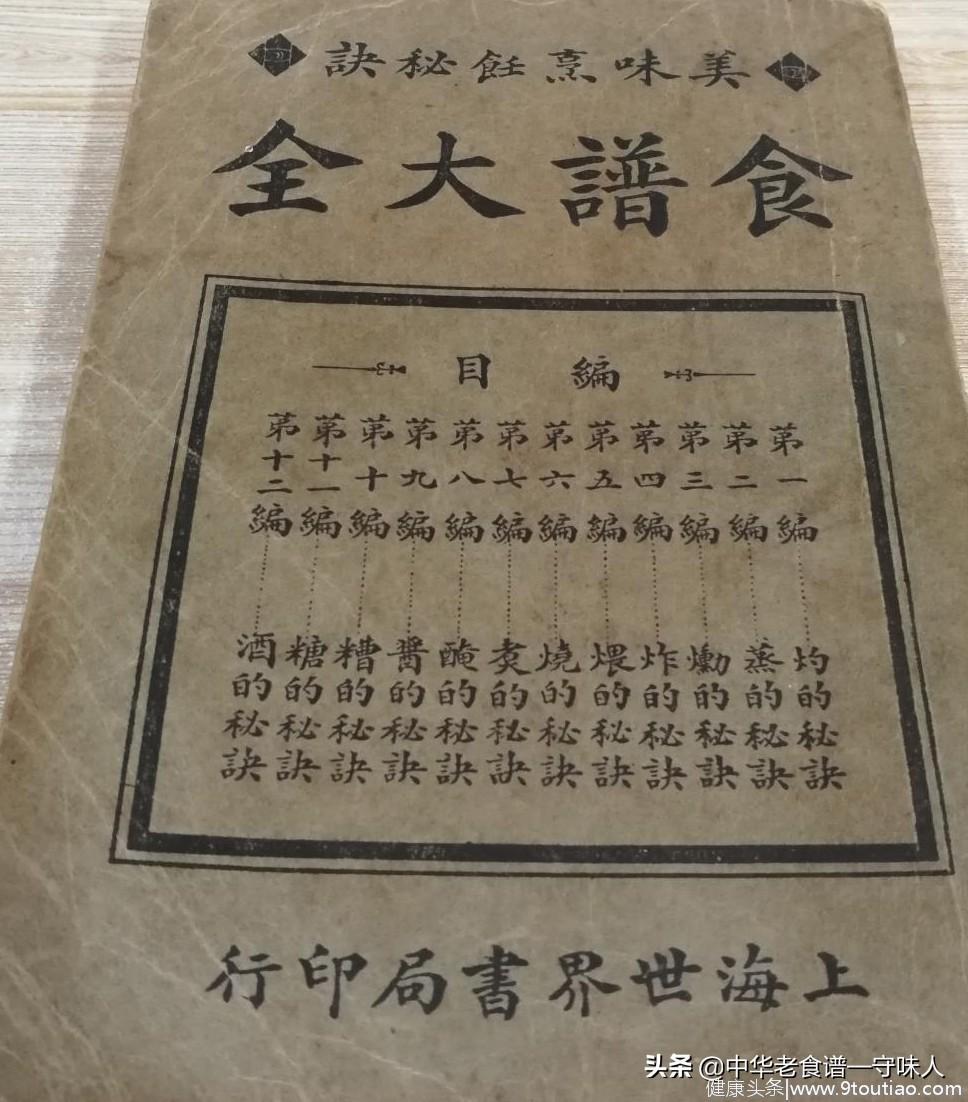 美味烹飪秘訣
食譜大全
編目
第一編 灼的秘訣
第二編 蒸的秘訣
第三編 爋的秘訣
第四編 炸的秘訣
第五編 煨的秘訣
第六編 燒的秘訣
第七編 炙的秘訣
第八編 醃的秘訣
第九編 醬的秘訣
第十編 糟的秘訣
第十一編 糖的秘訣
第十二編 酒的秘訣
上海世界書局印行
头条 @中华老食谱一守味人
健康头条|www.9toutiao.com